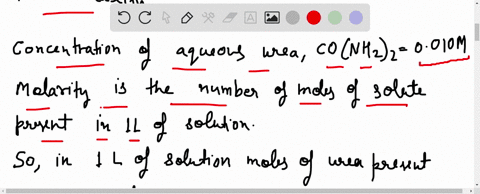 Concentration of aqueous urea, CO(NH2)2 = 0.010M
Molarity is the number of moles of solute
present in 1L of solution.
So, in 1 L of solution moles of urea present